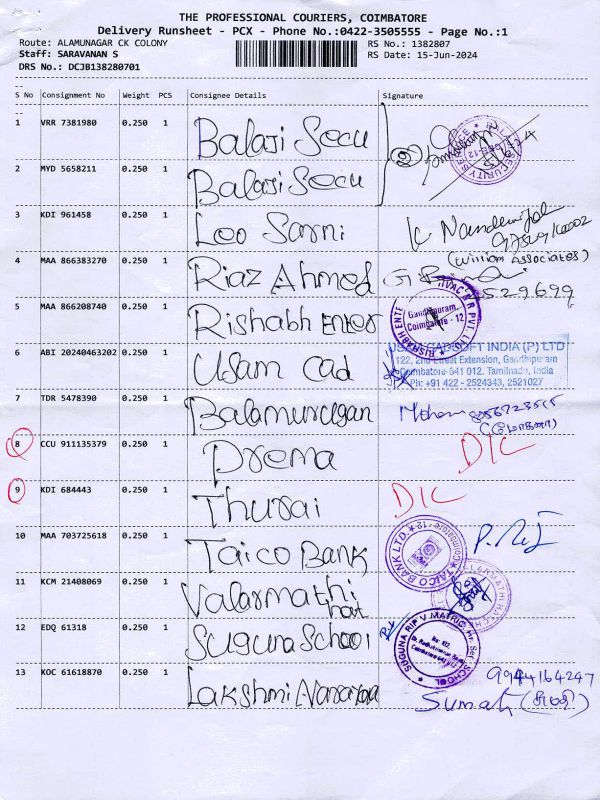 THE PROFESSIONAL COURIERS, COIMBATORE
Delivery Runsheet - PCX - Phone No.:0422-3505555 - Page No.:1
Route: ALAMUNAGAR CK COLONY
RS No.: 1382807
Staff: SARAVANAN S
RS Date: 15-Jun-2024
DRS No.: DCJB138280701
S No Consignment No Weight PCS Consignee Details Signature
1 VRR 7381980 0.250 1 Balaji Secu
2 MYD 5658211 0.250 1 Balaji Secu
3 KDI 961458 0.250 1 Leo Sarni
(William Associates)
4 MAA 866383270 0.250 1 Riaz Ahmed
529699
5 MAA 866208740 0.250 1 Rishabh Enter
Gandhipuram,
Coimbatore - 12
6 ABI 20240463202 0.250 1 Usam Cad
SOFT INDIA (P) LTD
122, 2nd Street Extension, Gandhipuram
Coimbatore 641 012. Tamilnadu, India
Ph: +91 422 - 2524343, 2521027
7 TDR 5478390 0.250 1 Balamurugan
8 CCU 911135379 0.250 1 Prema D/C
9 KDI 684443 0.250 1 Thurai D/C
10 MAA 703725618 0.250 1 Taico Bank
TAICO BANK LTD
11 KCM 21408069 0.250 1 Valarmathi
12 EDQ 61318 0.250 1 Suguna School
SUGUNA RIP V. MATRIC. Hr. Sec. SCHOOL
13 KOC 61618870 0.250 1 Lakshmi Narayana
9944164247